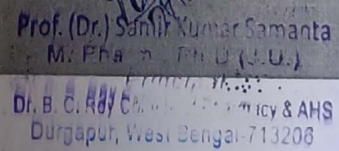 Prof. (Dr.) Samir Kumar Samanta
M. Pha (J.U.)
Dr. B. C. Roy & AHS
Durgapur, West Bengal-713206